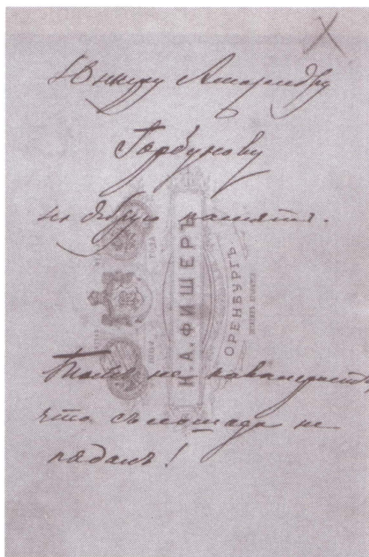 Юнкеру Александру
Горбунову
на добрую память.
Н. А. ФИШЕРЪ
ОРЕНБУРГЪ
не кавалеристъ,
что съ лошади не
падалъ!